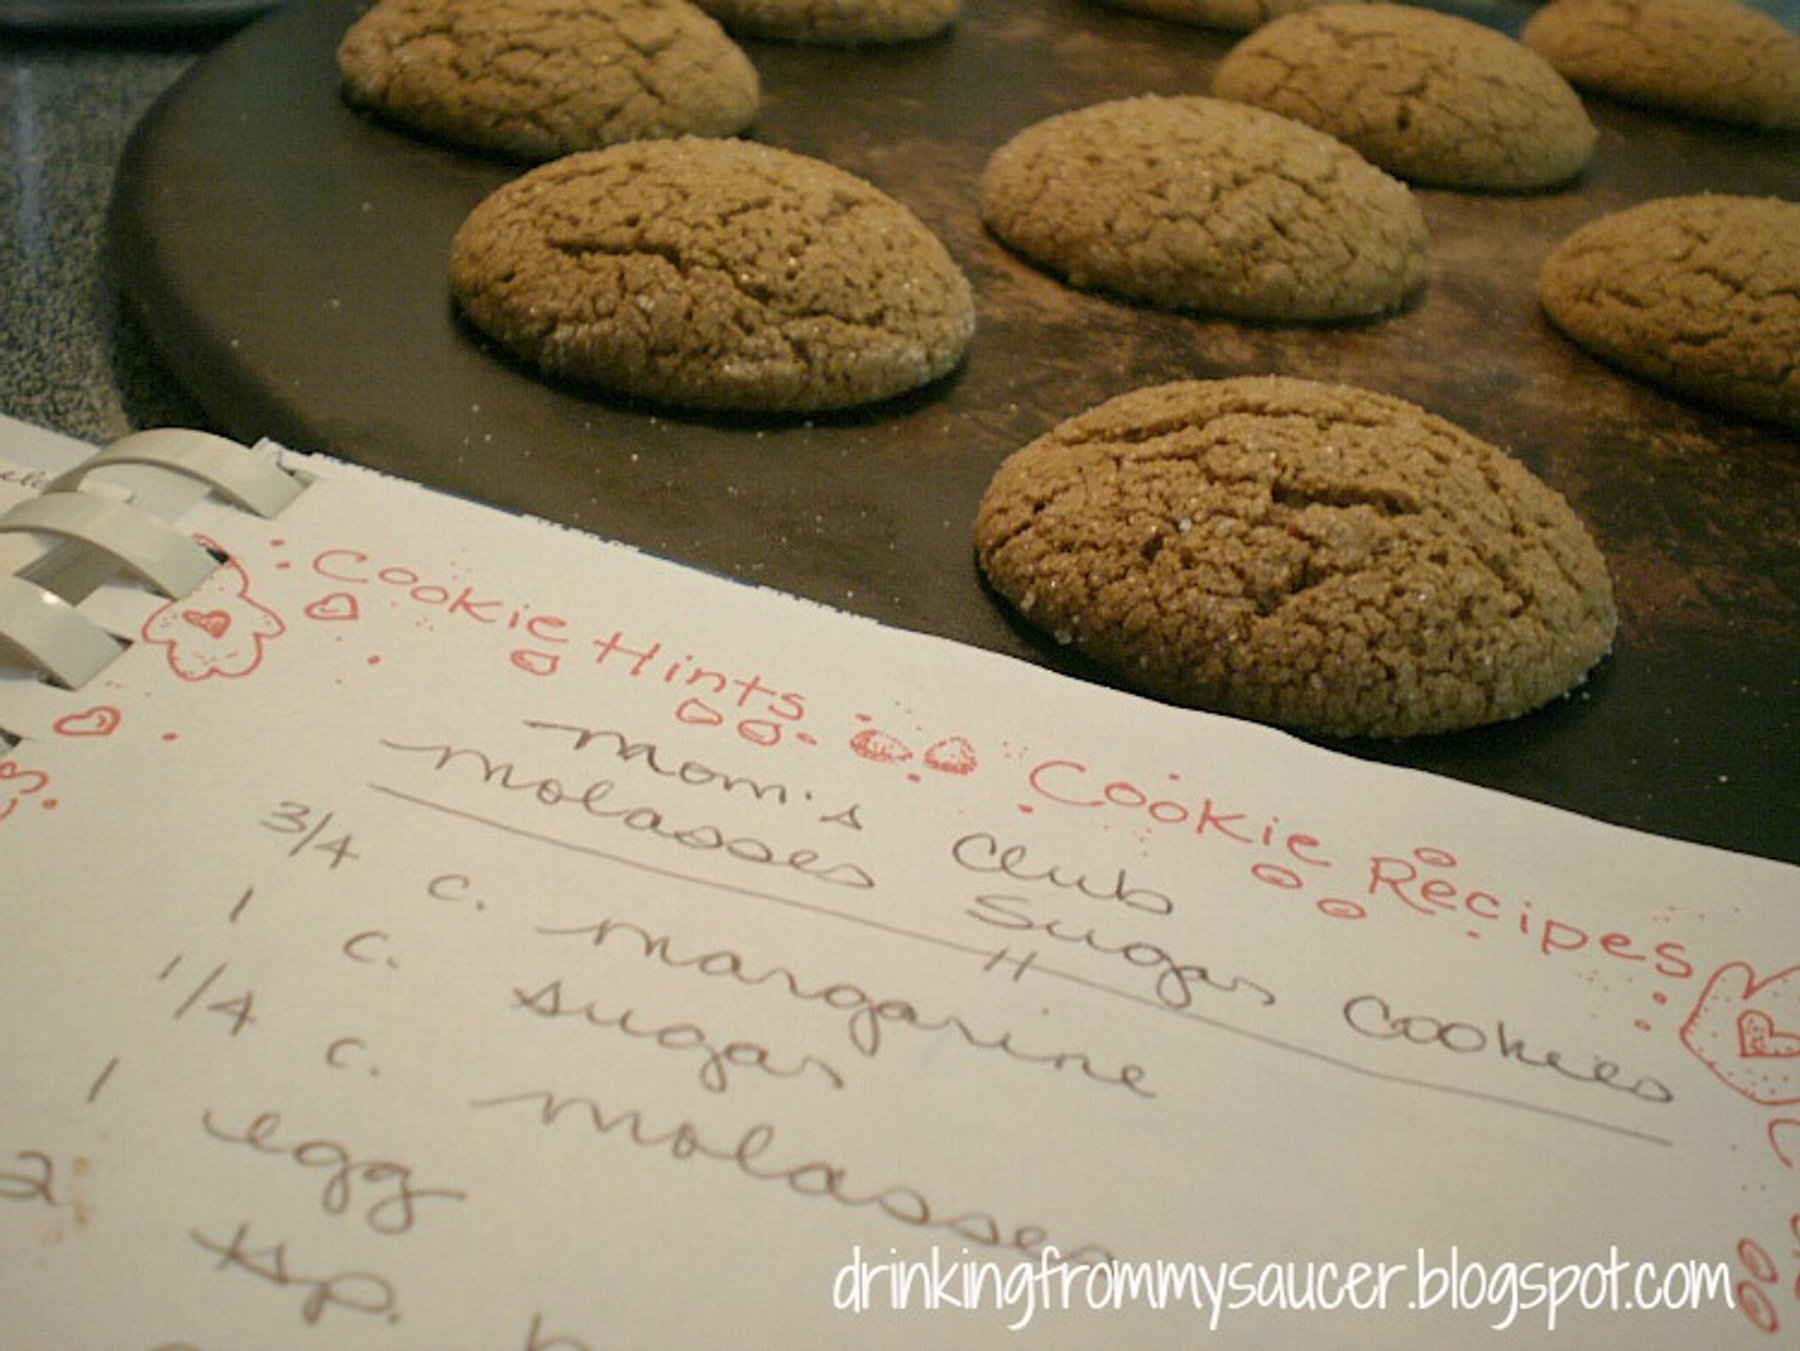 Cookie Hints Cookie Recipes
Mom's Club
Molasses Sugar Cookies
3/4 c. margarine
1 c. sugar
1/4 c. molasses
1 egg
2 tsp.
drinkingfrommysaucer.blogspot.com